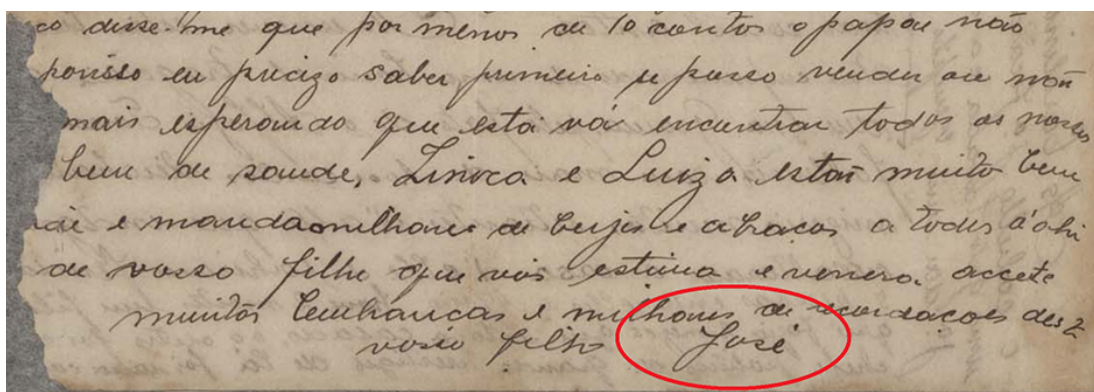 co disse-me que por menos de 10 contos o papae não
porisso eu precizo saber primeiro se posso vender ou não
mais esperando que esta vá encontrar todos os nossos
bem de saude, Zinoca e Luiza estão muito bem
e manda milhares de beijos e abraços a todos d'ahi
de vosso filho que vós estima e venera. accete
muitas lembranças e milhares de recordações des2
vosso filho José